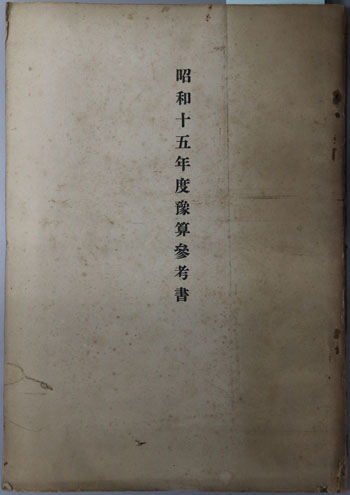 昭和十五年度豫算參考書